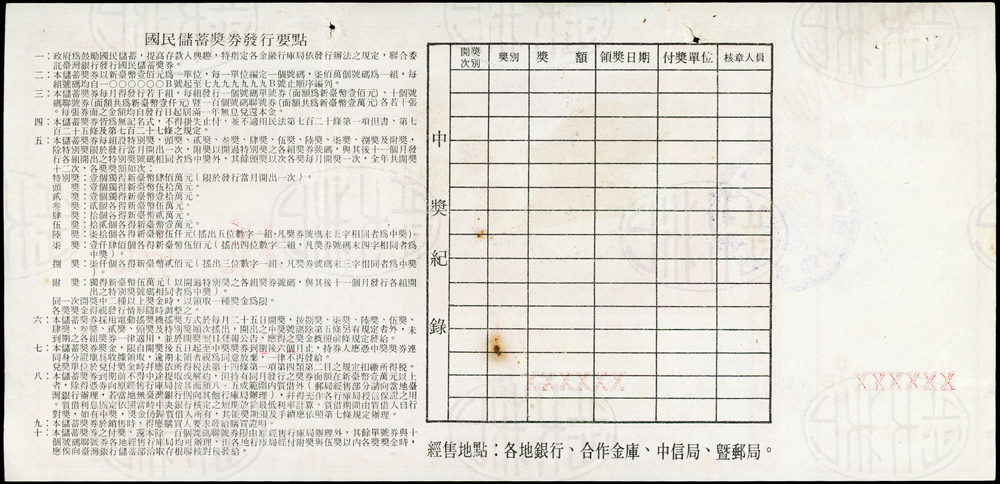 國民儲蓄獎券發行要點
一：政府爲鼓勵國民儲蓄，提高存款人興趣，特指定各金融行庫局依發行辦法之規定，聯合委
託臺灣銀行發行國民儲蓄獎券。
二：本儲蓄獎券以新臺幣壹佰元爲一單位，每一單位編定一個號碼，柒佰萬個號碼爲一組，每
組號碼均自一〇〇〇〇〇〇B號起至七九九九九九九B號止順序編列。
三：本儲蓄獎券每月得發行若干組，每組發行一個號碼單號券（面額爲新臺幣壹佰元）、十個號
碼聯號券（面額共爲新臺幣壹仟元）暨一百個號碼聯號券（面額共爲新臺幣壹萬元）各若干張
。每張券面之金額均自發行日起屆滿一年無息兌還本金。
四：本儲蓄獎券皆爲無記名式，不得掛失止付，並不適用民法第七百二十條第一項但書、第七
百二十五條及第七百二十七條之規定。
五：本儲蓄獎券每組設特別獎、頭獎、貳獎、叁獎、肆獎、伍獎、陸獎、柒獎、捌獎及附獎，
除特別獎限於發行當月開出一次，附獎以開過特別獎之各組獎券號碼，與其後十一個月發
行各組開出之特別獎號碼相同者爲中獎外，其餘頭獎以次各獎每月開獎一次，全年共開獎
十二次，各獎獎額如次：
特別獎：壹個獨得新臺幣肆佰萬元（限於發行當月開出一次）。
頭　獎：壹個獨得新臺幣伍拾萬元。
貳　獎：壹個獨得新臺幣壹拾萬元。
叁　獎：貳個各得新臺幣伍萬元。
肆　獎：拾個各得新臺幣貳萬元。
伍　獎：拾貳個各得新臺幣壹萬元。
陸　獎：柒拾個各得新臺幣伍仟元（搖出五位數字一組，凡獎券號碼末五字相同者爲中獎）。
柒　獎：壹仟肆佰個各得新臺幣伍佰元（搖出四位數字二組，凡獎券號碼末四字相同者爲
中獎）。
捌　獎：柒仟個各得新臺幣貳佰元（搖出三位數字一組，凡獎券號碼末三字相同者爲中獎
）。
附　獎：獨得新臺幣伍萬元（以開過特別獎之各組獎券號碼，與其後十一個月發行各組開
出之特別獎號碼相同者爲中獎）。
同一次開獎中二種以上獎金時，以領取一種獎金爲限。
各獎獎金得視發行情形隨時調整之。
六：本儲蓄獎券採用電動搖獎機搖獎方式於每月二十五日開獎，按捌獎、柒獎、陸獎、伍獎、
肆獎、叁獎、貳獎、頭獎及特別獎順次搖出，開出之中獎號碼除第五條另有規定者外，未
到期之各組獎券一律適用，並於開獎翌日登報公告，應得之獎金概照前條規定發給。
七：本儲蓄獎券獎金，限自開獎後五日起至中獎獎券到期後六個月止，持券人應憑中獎獎券連
同身分證填具收據領取，逾期未領者視爲同意放棄，一律不再發給。
兌獎單位於兌付獎金時幷應依所得稅法第十四條第一項第四類第二目之規定扣繳所得稅。
八：本儲蓄獎券到期前不得中途提取或解約，但持有同月發行之獎券面額在新臺幣壹萬元以上
者，除得憑券向原經售行庫局按其面額八、五成範圍內質借外（郵局經售部分請向當地臺
灣銀行辦理，若當地無臺灣銀行則向其他行庫局辦理），幷得充作各行庫局授信保證之用
。質借利息按定依照當時中央銀行核定之短期放款最低利率計算，質借期間由質借人自行
對獎，如有中獎，獎金仍歸質借人所有，其領獎期限及手續應依照第七條規定辦理。
九：本儲蓄獎券於銷售時，得應購買人要求發給購買證明。
十：本儲蓄獎券之付獎，還本除一百個號碼聯號券限由原經售行庫局辦理外，其餘單號券與十
個號碼聯號券各地經售行庫局均可辦理，但各地行庫局經付附獎與伍獎以內各獎獎金時，
應俟向臺灣銀行儲蓄部洽取存根聯核對後發給。
中獎紀錄
開獎次別　獎別　獎額　領獎日期　付獎單位　核章人員
XXXXXX　XXXXXX
經售地點：各地銀行、合作金庫、中信局、暨郵局。